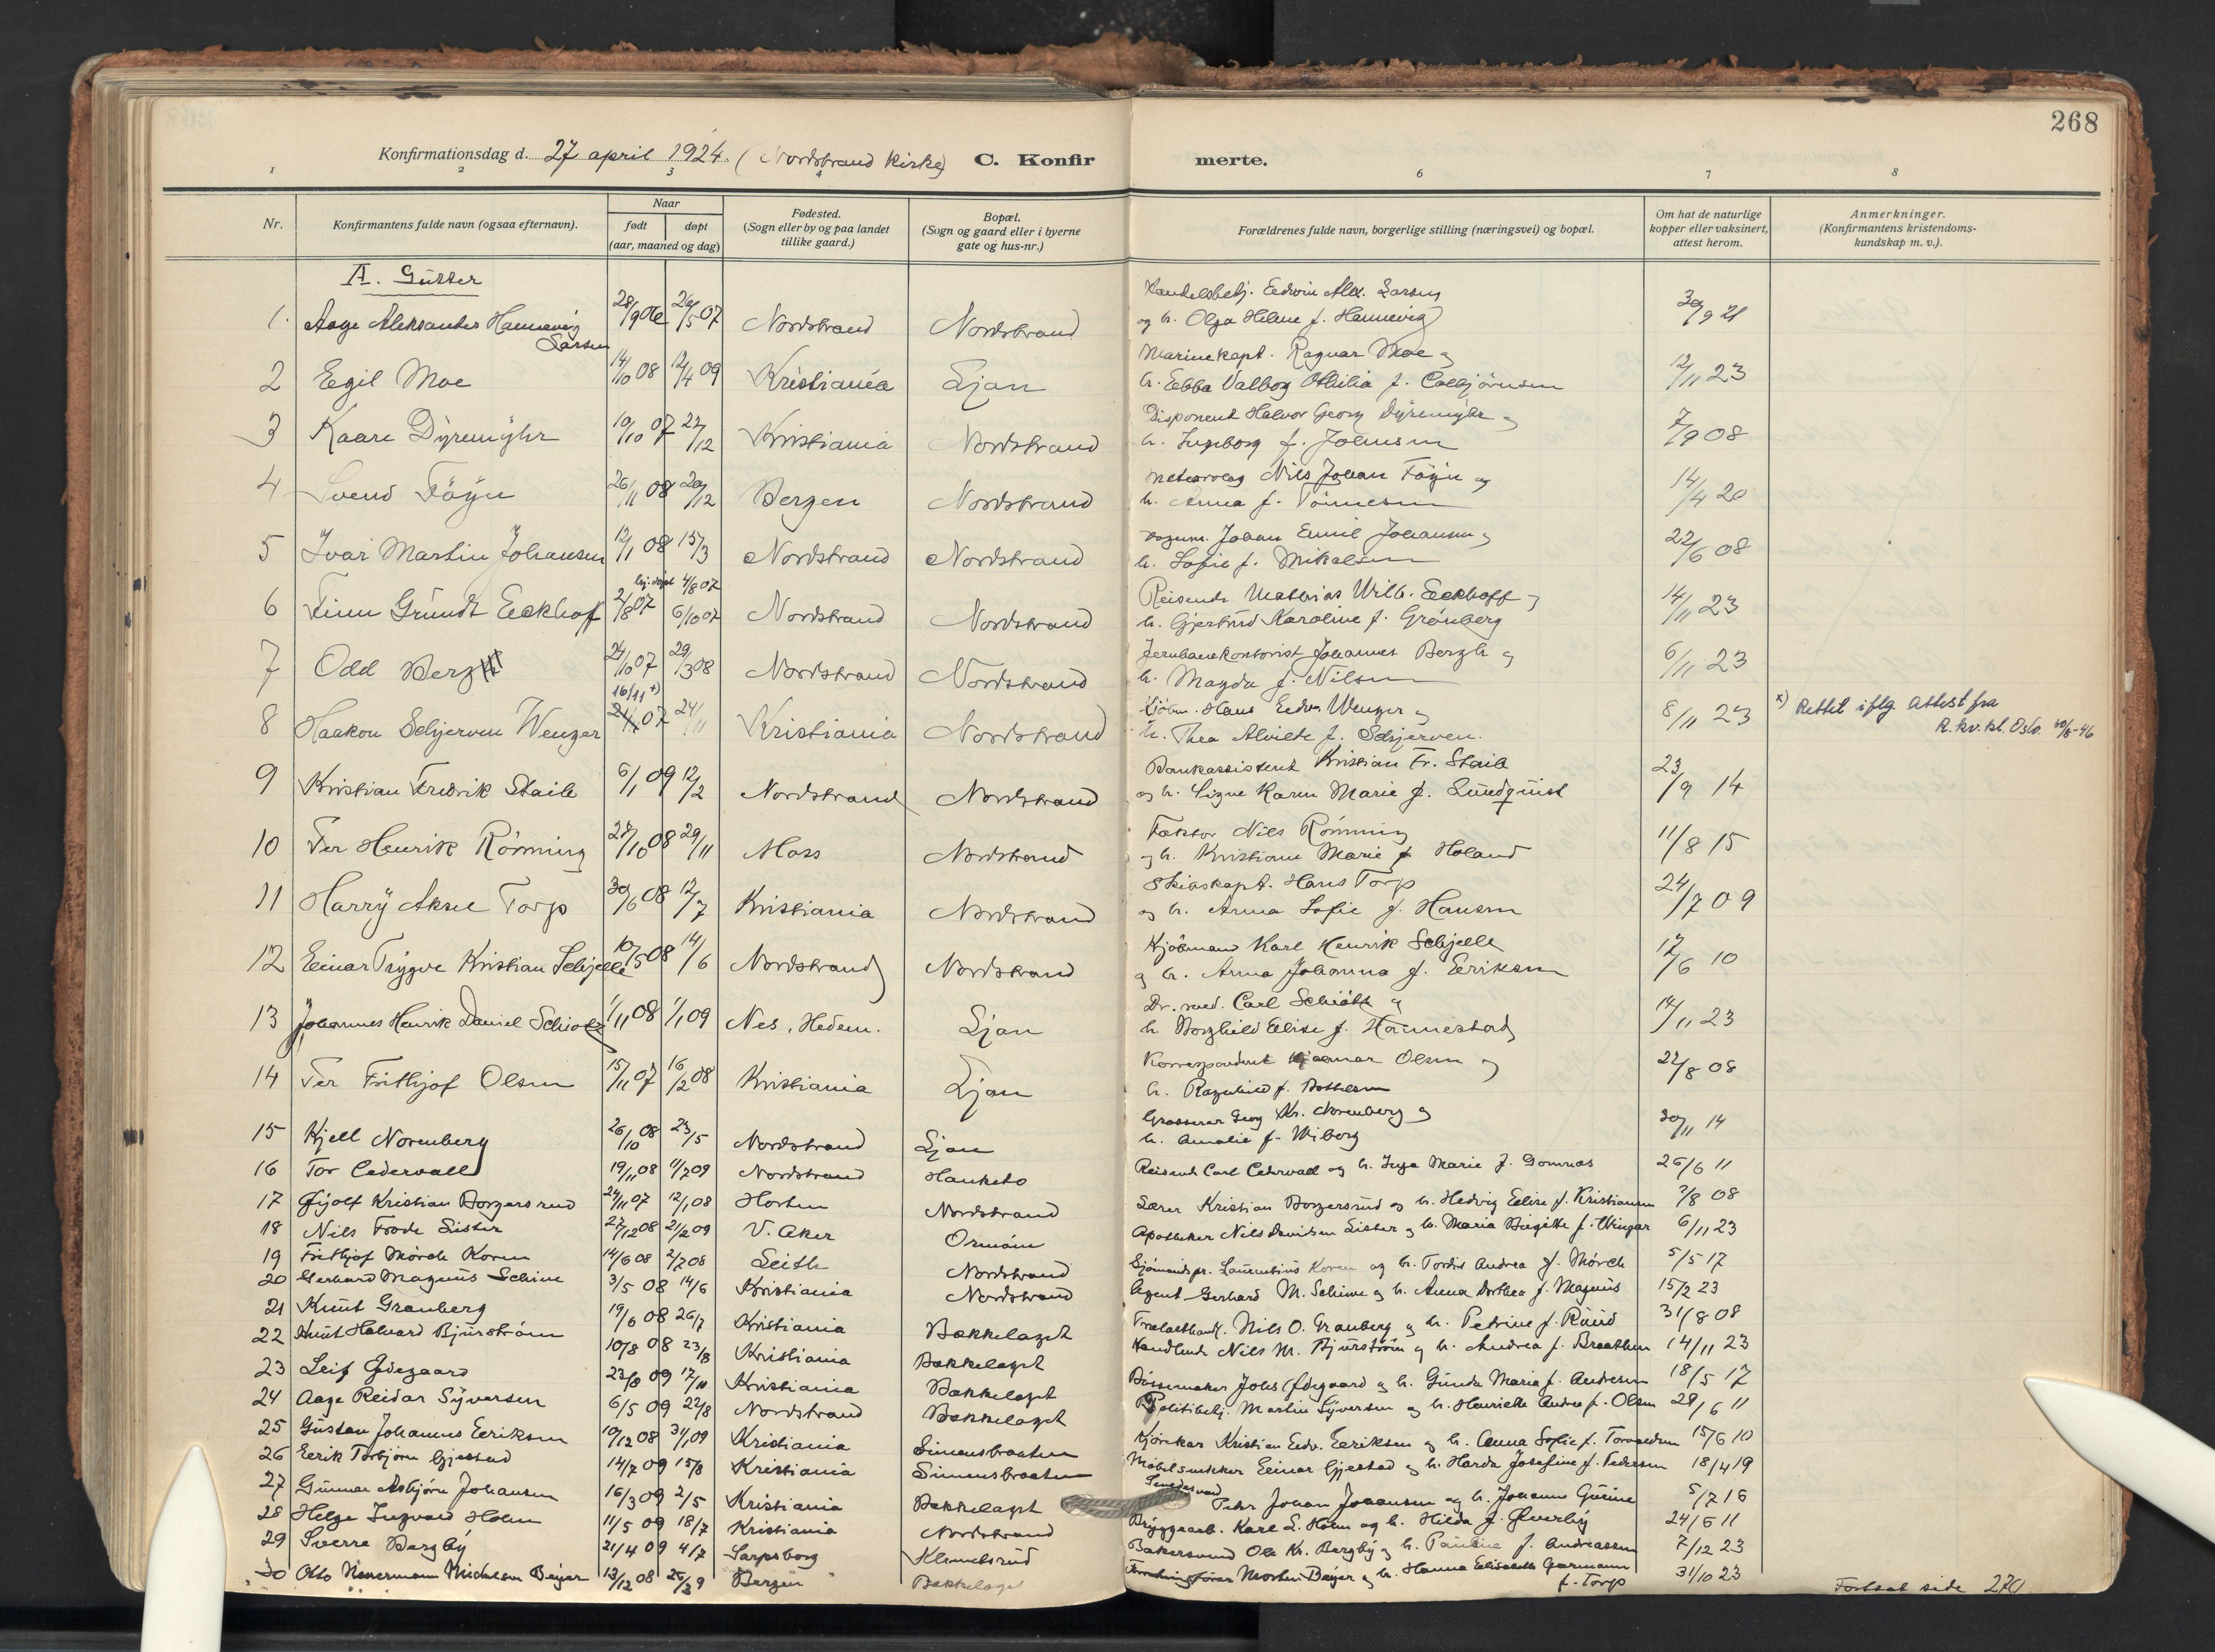 268
Konfirmationsdag d. 27 april 1924. (Nordstrand Kirke) C. Konfirmerte.
1 2 3 4 6 7 8
Nr. | Konfirmantens fulde navn (ogsaa efternavn). | Naar født døpt (aar, maaned og dag) | Fødested. (Sogn eller by og paa landet tillike gaard.) | Bopæl. (Sogn og gaard eller i byerne gate og hus-nr.) | Forældrenes fulde navn, borgerlige stilling (næringsvei) og bopæl. | Om hat de naturlige kopper eller vaksinert, attest herom. | Anmerkninger. (Konfirmantens kristendomskundskap m. v.).
A. Gutter
1. Aage Aleksander Hannevig Larsen 28/9 06 20/5 07 Nordstrand Nordstrand Handelsbetj. Edvin Alex. Larsen og h. Olga Helene f. Hannevig 30/9 21
2 Egil Moe 14/10 08 12/4 09 Kristiania Ljan Marinekapt. Ragnar Moe og h. Ebba Valborg Othilia f. Calljörnsen 12/11 23
3 Kaare Dyremyhr 10/10 07 22/12 Kristiania Nordstrand Disponent Halvor Georg Dyremyhr og h. Ingeborg f. Johnsen 7/9 08
4 Svend Föyn 26/11 08 20/12 Bergen Nordstrand Meteorolog Nils Johan Föyn og h. Anna f. Tönnesen 14/4 20
5 Ivar Martin Johansen 12/1 08 15/3 Nordstrand Nordstrand Vognm. Johan Emil Johansen og h. Sofie f. Mikalsen 22/6 08
6 Finn Gründt Eckhoff 2/8 07 hj. døpt 4/8 07 6/10 07 Nordstrand Nordstrand Reisende Mathias Wilh. Eckhoff og h. Gjertrud Karoline f. Grönberg 14/11 23
7 Odd Bergh 24/10 07 29/3 08 Nordstrand Nordstrand Jernbanekontorist Johannes Bergh og h. Magda f. Nilsen 6/11 23
8 Haakon Schjerven Wenger 16/11 x) 07 24/11 Kristiania Nordstrand Kjöbm. Hans Edv. Wenger og h. Thea Alvilde f. Schjerven. 8/11 23 x) Rettet iflg. attest fra R. kv. kl. Oslo. 20/8-46
9 Kristian Fredrik Staib 6/1 09 12/2 Nordstrand Nordstrand Bankassistent Kristian Fr. Staib og h. Signe Karen Marie f. Lundquist 23/9 14
10 Per Henrik Rönning 27/10 08 29/11 Moss Nordstrand Faktor Nils Rönning og h. Kristiane Marie f. Holand 11/8 15
11 Harry Aksel Torp 30/6 08 12/7 Kristiania Nordstrand Skibskapt. Hans Torp og h. Anna Sofie f. Hansen 24/7 09
12 Einar Trygve Kristian Schjelle 10/5 08 14/6 Nordstrand Nordstrand Kjöbmand Karl Henrik Schjelle og h. Anna Johanna f. Eriksen 12/6 10
13 Johannes Henrik Daniel Schiötz 1/11 08 1/1 09 Nes, Hedem. Ljan Dr. med. Carl Schiötz og h. Borghild Elise f. Hannestad 14/11 23
14 Per Frithjof Olsen 15/11 07 16/2 08 Kristiania Ljan Korrespondent Hjalmar Olsen og h. Ragnhild f. Bottelsen 22/8 08
15 Kjell Norenberg 26/10 08 23/5 Nordstrand Ljan Grosserer Georg Kr. Norenberg og h. Amalie f. Wiborg 30/11 14
16 Tor Cedervall 19/11 08 11/7 09 Nordstrand Hauketo Reisende Carl Cedervall og h. Inga Marie f. Domnas 26/6 11
17 Gjolf Kristian Borgersrud 24/11 07 12/1 08 Horten Nordstrand Lærer Kristian Borgersrud og h. Hedvig Elise f. Kristiansen 7/8 08
18 Nils Frode Lister 27/12 08 21/2 09 V. Aker Ormöen Apotheker Nils Davidsen Lister og h. Maria Birgitte f. Wingar 6/11 23
19 Frithjof Mörch Koren 14/6 08 2/7 08 Leith Nordstrand Sjömandspr. Laurentius Koren og h. Tordis Andrea f. Mörch 5/5 17
20 Gerhard Magnus Schive 3/5 08 14/6 Kristiania Nordstrand Agent Gerhard M. Schive og h. Anna Dorthea f. Magnus 15/2 23
21 Knut Granberg 19/6 08 26/7 Kristiania Bækkelaget Trælasthandl. Nils O. Granberg og h. Petrine f. Ruud 31/8 08
22 Knut Halvard Bjurström 10/8 08 23/8 Kristiania Bækkelaget Handlende Nils M. Bjurström og h. Andrea f. Braathen 14/11 23
23 Leif Ødegaard 23/8 09 17/10 Kristiania Bækkelaget Bössemaker Johs Ødegaard og h. Gunda Maria f. Andersen 18/5 17
24 Aage Reidar Syversen 6/5 09 22/8 Nordstrand Bækkelaget Politibetj. Martin Syversen og h. Henriette Andrea f. Olsen 29/6 11
25 Gustav Johannes Eriksen 10/12 08 31/1 09 Kristiania Simensbraaten Kjörekar Kristian Edv. Eriksen og h. Anna Sofie f. Torvaldsen 15/6 10
26 Erik Torbjörn Gjestad 14/7 09 15/8 Kristiania Simensbraaten Möbelsnekker Einar Gjestad og h. Harda Josefine f. Pedersen 18/4 19
27 Gunnar Asbjörn Johansen 16/3 09 2/5 Kristiania Bækkelaget Peder Johan Johansen og h. Johanne Gurine 5/7 16
28 Helge Ingvald Holm 11/5 09 18/7 Kristiania Nordstrand Bryggearb. Karl L. Holm og h. Hilda f. Øverby 24/6 11
29 Sverre Bergby 21/4 09 4/7 Sarpsborg Klemetsrud Bakersvend Ole Kr. Bergby og h. Pauline f. Andreassen 7/12 23
30 Otto Nonermann Michelsen Beyer 13/12 08 25/3 9 Bergen Bækkelaget Forretningsförer Morten Beyer og h. Hanna Elisabeth Garmann f. Torp 31/10 23
Fortsat side 270